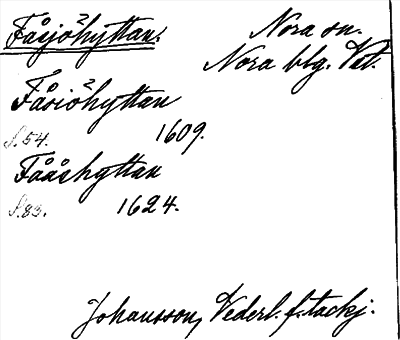 Fåsjöhyttan. Nora sn.
Nora blg. Vstl.
Fåsiöhyttan
S.54. 1609.
Fååshyttan
S.83. 1624.
Johansson, Vederl. f. tackj.